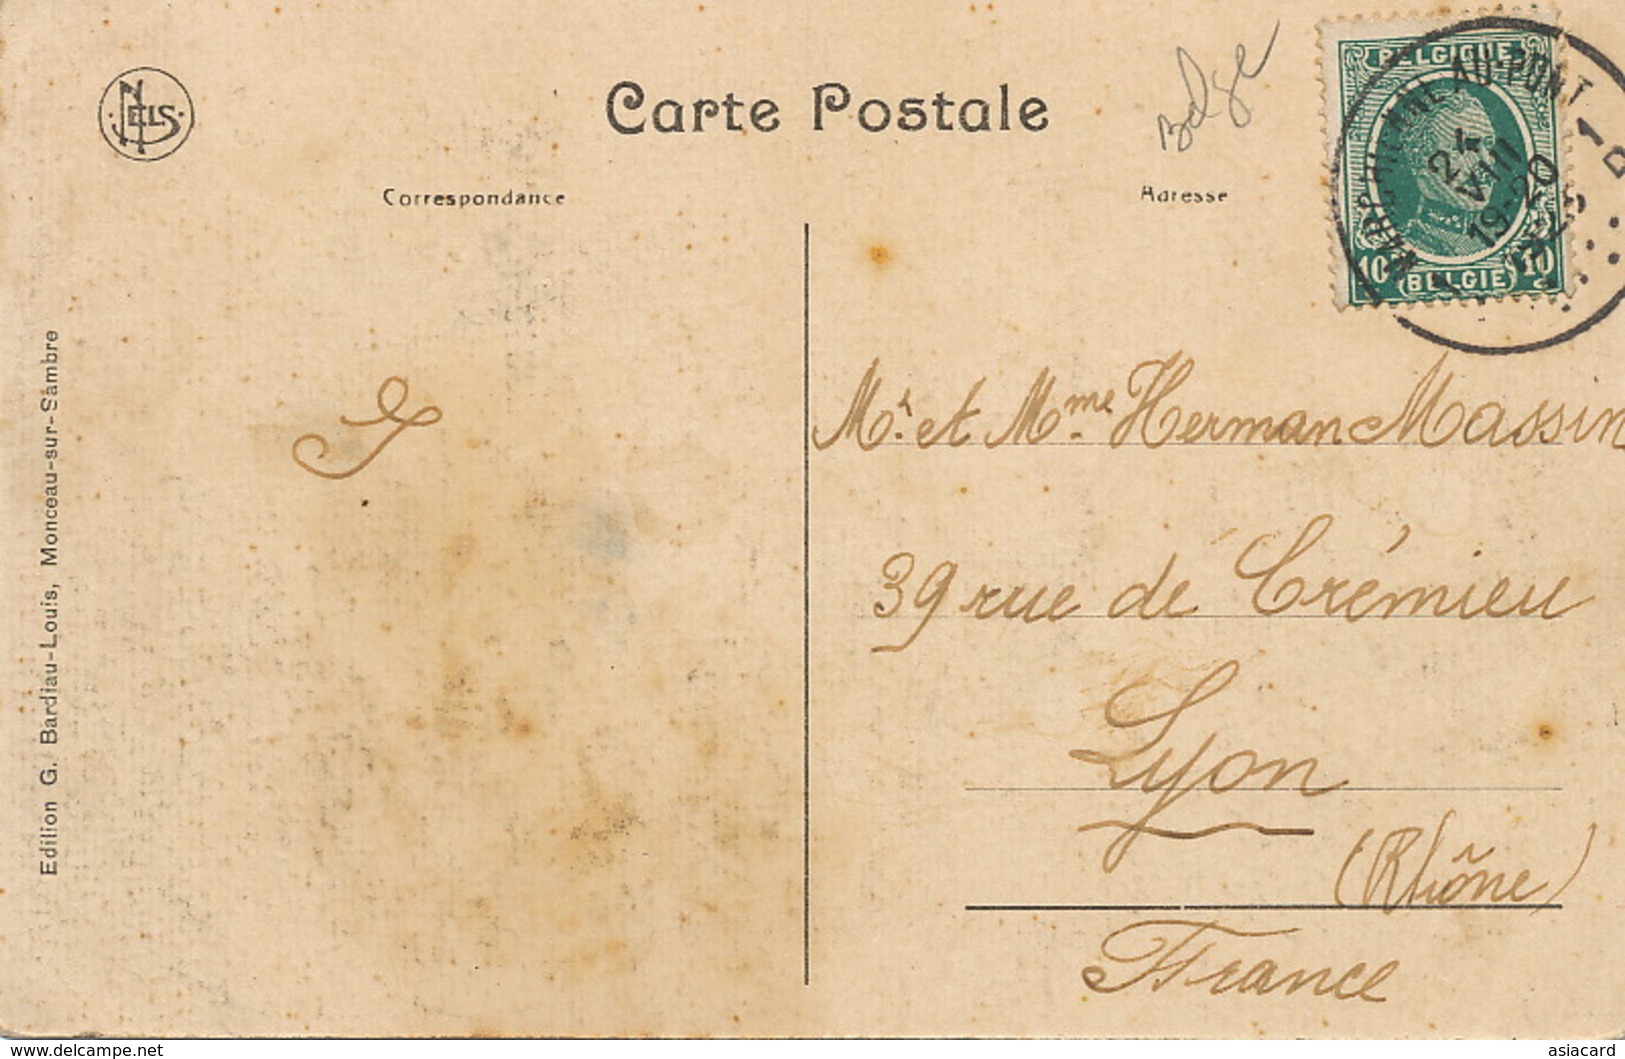 NELS
Carte Postale
Belge
Correspondance
Adresse
BELGIQUE
MARCHIENNE-AU-PONT
24
VIII
19-20
1925
10 BELGIE 10
Edition G. Bardiau-Louis, Monceau-sur-Sambre
Mr. et Mme Herman Massin
39 rue de Crémieu
Lyon
(Rhône)
France
www.delcampe.net
asiacard